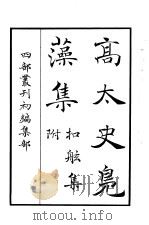 高太史鳧
藻集
附
扣舷集
四部叢刊初編集部
mtoou.info